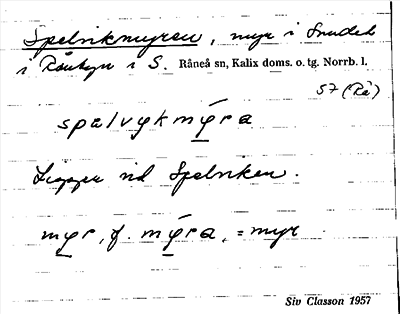 Spelvikmyren, myr i
i Rånbyn i S. Råneå sn, Kalix doms. o. tg. Norrb. l.
57 (Rå)
spelvykmyra
Ligger vid Spelviken.
myr, f. myra, = myr
Siv Classon 1957